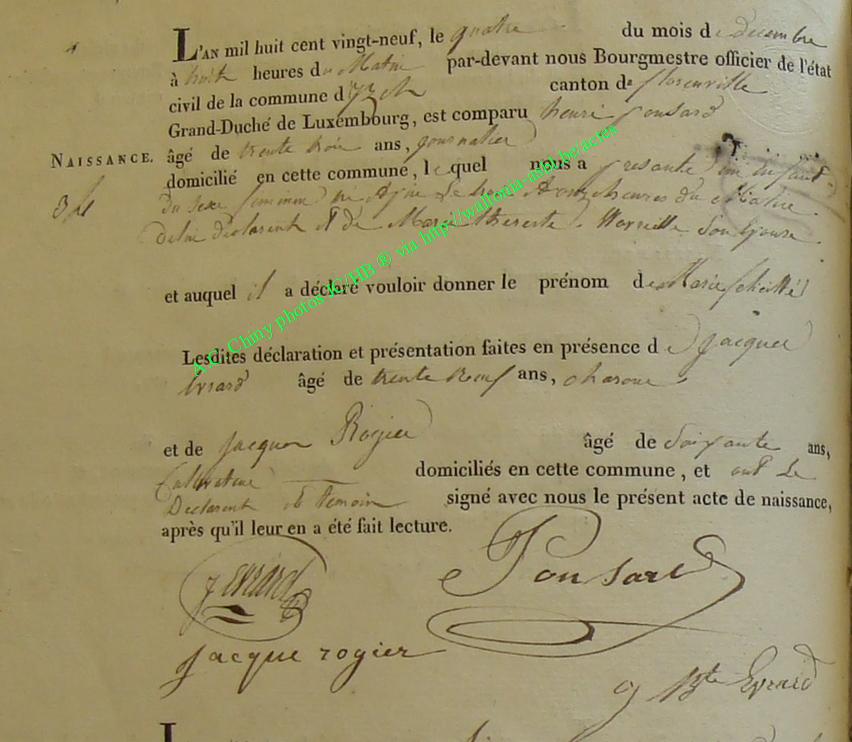 L'AN mil huit cent vingt-neuf, le quatre du mois de decembre
à huit heures du Matin par-devant nous Bourgmestre officier de l'état
civil de la commune d'Izel canton de florenville
Grand-Duché de Luxembourg, est comparu henri ponsard
NAISSANCE. âgé de trente trois ans, journalier
domicilié en cette commune, lequel nous a presanté un enfant
du sexe feminin heures du Matin
Delui declarent et de Marie therese Son Epouse
et auquel il a déclaré vouloir donner le prénom de Marie felicité
Lesdites déclaration et présentation faites en présence de jacques
Evrard âgé de trente neuf ans,
et de jacque Rogier âgé de Soixante ans,
Cultivateur domiciliés en cette commune, et ont Le
Declarent et temoin signé avec nous le présent acte de naissance,
après qu'il leur en a été fait lecture.
J Evrard Ponsard
jacque rogier
Bte Evrard
AEL Chiny photos IC/HB ® via http://wallonia-asbl.be/actes